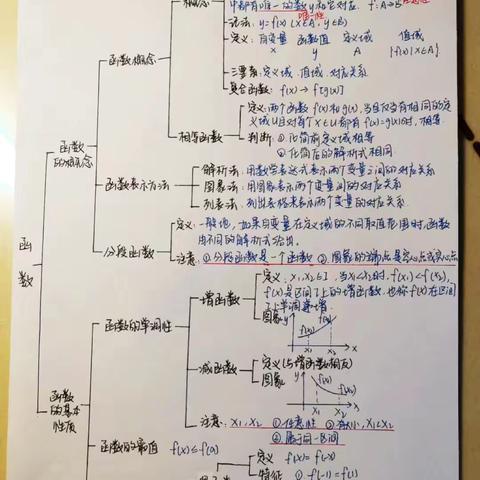 概念
中都有唯一的数y和它对应. f: A→B
唯一性
记法: y=f(x) (x∈A, y∈B)
定义: 自变量 函数值 定义域 值域
x y A {f(x)|x∈A}
函数概念
三要素: 定义域 值域 对应关系
复合函数: f(x) → f[g(x)]
相等函数
定义: 两个函数f(x)和g(x), 当且仅当有相同的定
义域U且对每个x∈U都有f(x)=g(x)时, 相等.
判断: ① 化简前定义域相等
② 化简后的解析式相同
函数
的概念
函数表示方法
解析法: 用数学表达式表示两个变量之间的对应关系
图象法: 用图象表示两个变量间的对应关系
列表法: 列出表格来表示两个变量的对应关系.
分段函数
定义: 一般地, 如果自变量在定义域的不同取值范围时, 函数
由不同的解析式给出.
注意: ①分段函数是一个函数 ②图象的端点是实心点或空心点
函
数
函数的单调性
增函数
定义: x₁,x₂∈I, 当x₁<x₂时, f(x₁)<f(x₂),
f(x)是区间I上的增函数, 也称f(x)在区间
I上单调递增.
图象
y
f(x₁)
f(x₂)
x₁ x₂ x
减函数
定义(与增函数相反)
图象
y
f(x₁)
f(x₂)
x₁ x₂ x
注意: x₁,x₂ ①任意性 ②有大小, x₁<x₂
③属于同一区间
函数
的基本
性质
函数的最值 f(x)≤f(a)
定义 f(x)=f(-x)
特征 ① f(-1)=f(1)